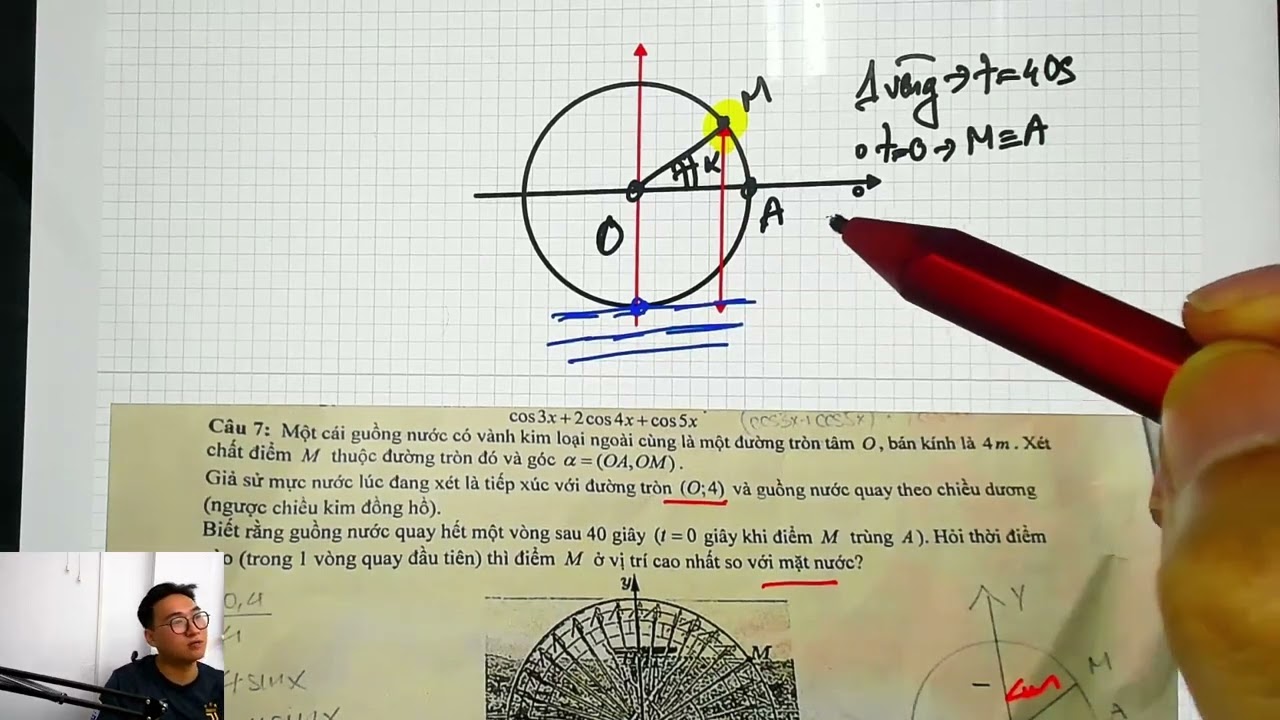 M
1 vòng → t=40s
t=0 → M≡A
α
O
A
cos3x+2cos4x+cos5x
(cos3x+cos5x)
Câu 7: Một cái guồng nước có vành kim loại ngoài cùng là một đường tròn tâm O, bán kính là 4m. Xét
chất điểm M thuộc đường tròn đó và góc α=(OA,OM).
Giả sử mực nước lúc đang xét là tiếp xúc với đường tròn (O;4) và guồng nước quay theo chiều dương
(ngược chiều kim đồng hồ).
Biết rằng guồng nước quay hết một vòng sau 40 giây (t=0 giây khi điểm M trùng A). Hỏi thời điểm
o (trong 1 vòng quay đầu tiên) thì điểm M ở vị trí cao nhất so với mặt nước?
0,4
4
y
M
Y
M
4m
A
sinx
sinx